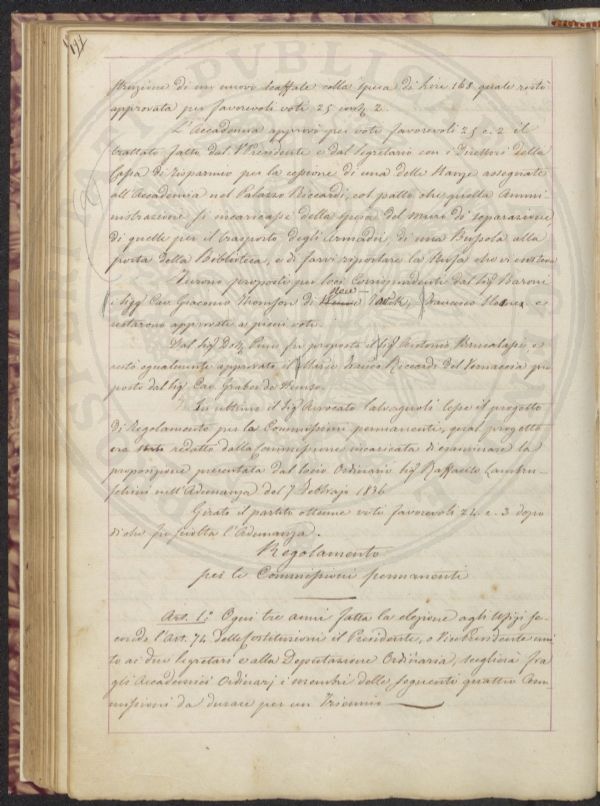 struzione di un nuovo scaffale colla spesa di Lire 168 quale restò
approvata per favorevoli voti 25 contº 2.
L'Accademia approvò per voti favorevoli 25 c. 2 il
trattato fatto dal V. Presidente e dal Segretario con i Direttori della
Cassa di Risparmio per la cessione di una delle Stanze assegnate
all'Accademia nel Palazzo Riccardi, col patto che quella Ammi-
nistrazione si incaricasse della spesa del muro di separazione,
di quelle per il trasporto degli Armadii, di una Bussola alla
porta della Biblioteca, e di farvi riportare la Stufa che vi esisteva
Furono proposti per Socj Corrispondenti dal Sigr Baroni
i Sigg Cav. Giacomo Thomson di New York, Francesco e
restarono approvati a pieni voti.
Dal Sigr Dott. Puni fu proposto il Sigr Antonio Brucalassi e
restò egualmente approvato il March Franco Riccardi Del Vernaccia pro
posto dal Sigr Cav. Graberg de Hemso.
In ultimo il Sigr Avvocato Salvagnoli lesse il progetto
di Regolamento per la Commissioni permanenti, qual progetto
era redatto dalla Commissione incaricata di esaminare la
proposizione presentata dal Socio Ordinario Sigr Raffaello Lambru-
schini nell'Adunanza del 7 Febbrajo 1836
Girato il partito ottenne voti favorevoli 24 c. 3 dopo
di che fu sciolta l'Adunanza.
Regolamento
per le Commissioni permanenti
Art. 1º Ogni tre anni fatta la elezione agli Ufizj se-
condo l'Art. 74 delle Costituzioni il Presidente, o Vice Presidente uni
to ai due Segretari e alla Deputazione Ordinaria, sceglierà fra
gli Accademici Ordinarj i membri delle seguenti quattro Com-
missioni da durare per un Triennio